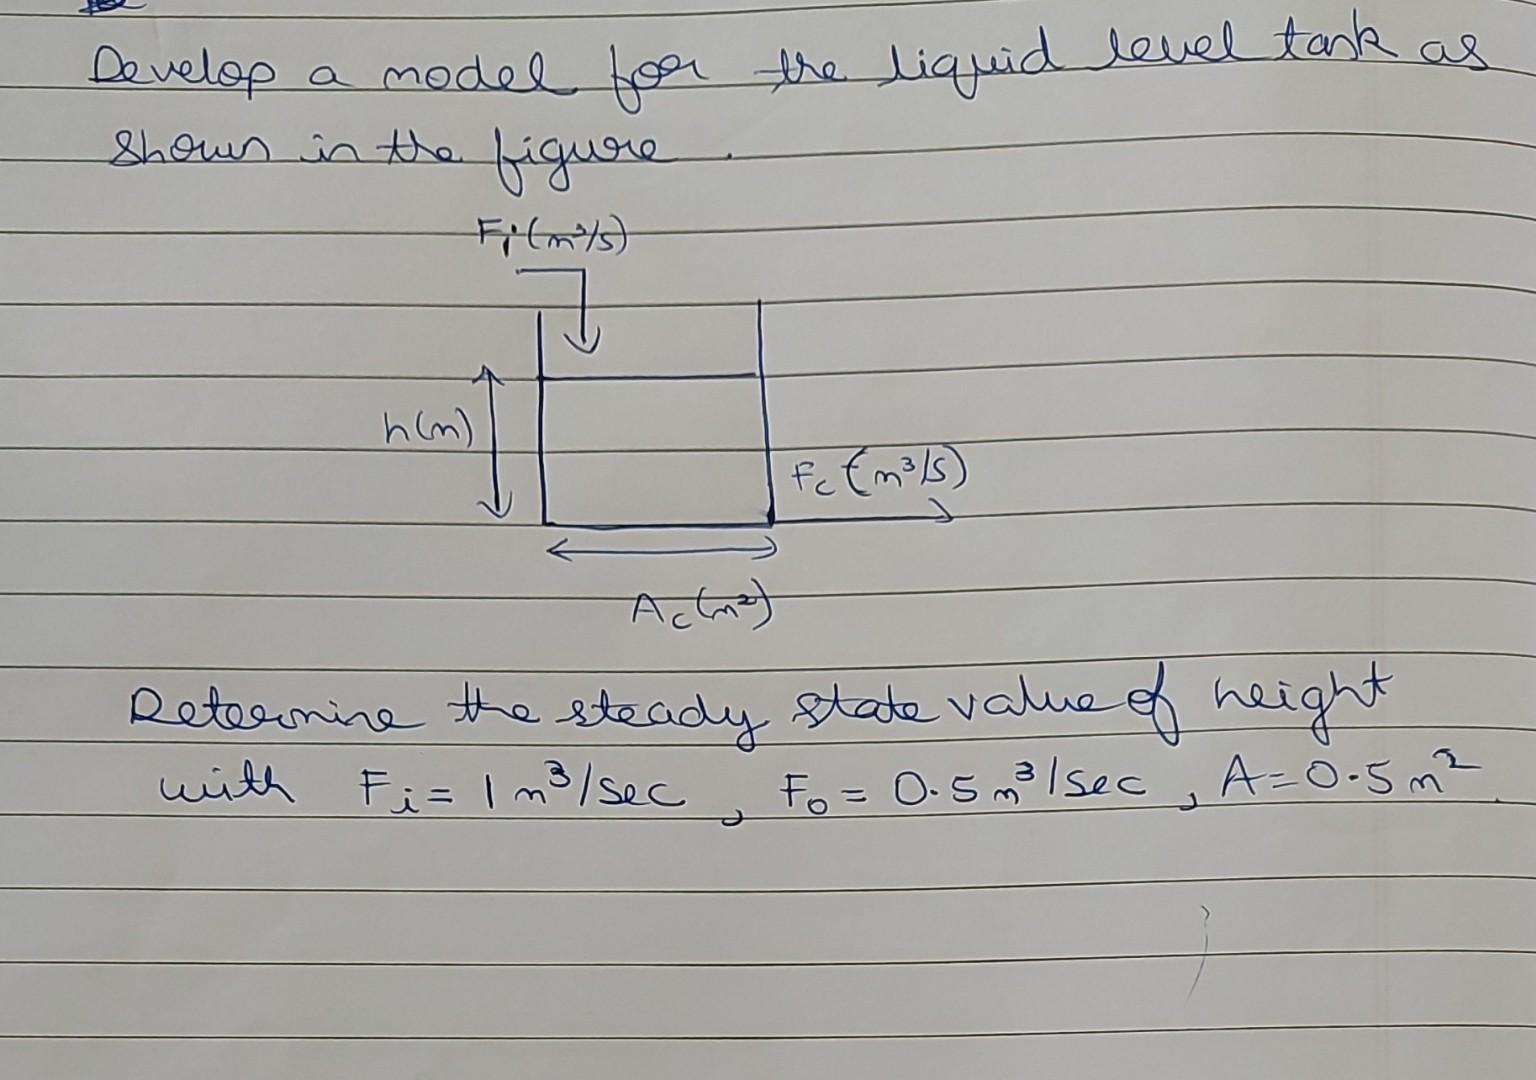 Develop a model for the liquid level tank as
shown in the figure.
Fi(m³/s)
h(m)
Fc(m³/s)
Ac(m²)
Determine the steady state value of height
with Fi = 1 m³/sec, Fo = 0.5 m³/sec, A = 0.5 m².